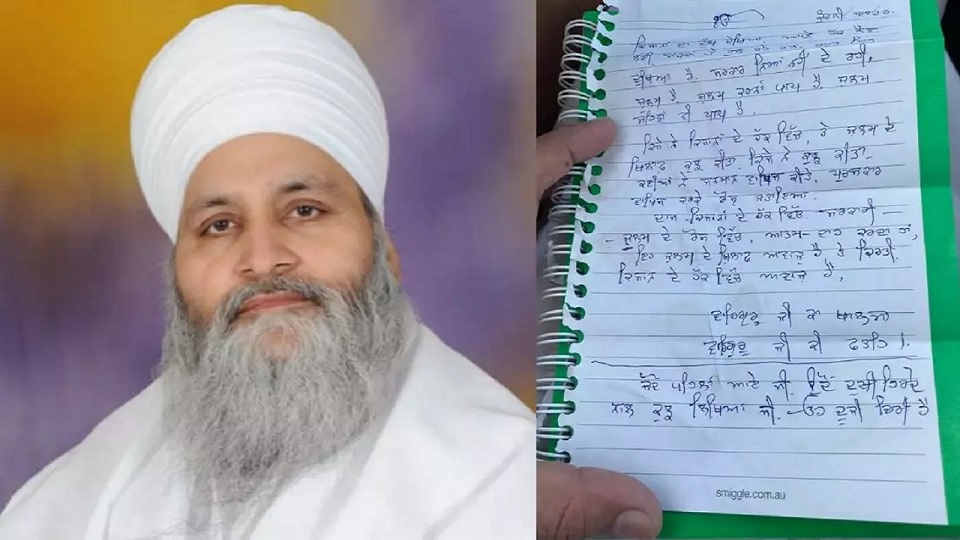 ੴ
ਕਿਸਾਨਾਂ ਦਾ ਦੁੱਖ ਦੇਖਿਆ ਆਪਣੇ ਹੱਕ ਲੈਣ
ਦੁਖਿਆ ਹੈ. ਸਰਕਾਰ ਨਿਆਂ ਨਹੀਂ ਦੇ ਰਹੀ,
ਜੁਲਮ ਹੈ, ਜੁਲਮ ਕਰਨਾਂ ਪਾਪ ਹੈ, ਜੁਲਮ
ਸਹਿਣਾਂ ਵੀ ਪਾਪ ਹੈ,
ਕਿਸੇ ਨੇ ਕਿਸਾਨਾਂ ਦੇ ਹੱਕ ਵਿੱਚ, ਤੇ ਜੁਲਮ ਦੇ
ਖਿਲਾਫ ਕੁਝ ਕੀਤਾ ਕਿਸੇ ਨੇ ਕੁਝ ਕੀਤਾ.
ਕਈਆਂ ਨੇ ਸਨਮਾਨ ਵਾਪਿਸ ਕੀਤੇ, ਪੁਰਸਕਾਰ
ਵਾਪਿਸ ਕਰਕੇ ਰੋਸ ਜਤਾਇਆ.
ਦਾਸ ਕਿਸਾਨਾਂ ਦੇ ਹੱਕ ਵਿੱਚ, ਸਰਕਾਰੀ
ਜੁਲਮ ਦੇ ਰੋਸ ਵਿੱਚ, ਆਤਮ-ਦਾਹ ਕਰਦਾ ਹਾਂ,
ਇਹ ਜੁਲਮ ਦੇ ਖਿਲਾਫ ਅਵਾਜ਼ ਹੈ, ਤੇ ਕਿਰਤੀ
ਕਿਸਾਨ ਦੇ ਹੱਕ ਵਿੱਚ ਅਵਾਜ਼ ਹੈ,
ਵਾਹਿਗੁਰੂ ਜੀ ਕਾ ਖਾਲਸਾ
ਵਾਹਿਗੁਰੂ ਜੀ ਕੀ ਫਤਹਿ ।
ਪਹਿਲਾਂ ਆਏ ਸੀ, ਉਦੋਂ ਦੁਖੀ ਹਿਰਦੇ
ਨਾਲ ਕੁਝ ਲਿਖਿਆ ਸੀ.
smiggle.com.au